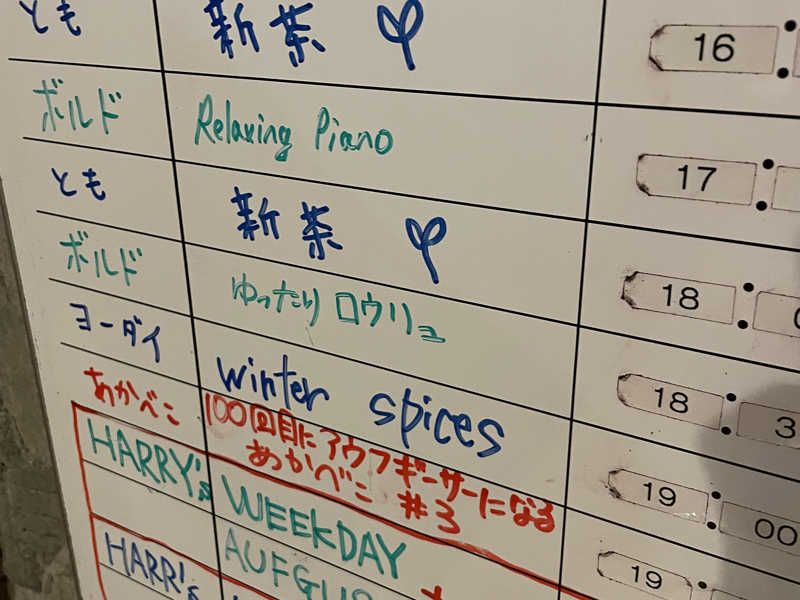 とも 新茶 16
ボルド Relaxing Piano 17
とも 新茶 18
ボルド ゆったりロウリュ 18 3
ヨーダイ winter spices 19 00
あかべこ 100回目にアウフギーサーになる 19
あかべこ #3
HARRY's WEEKDAY
AUFGUS
HARR's